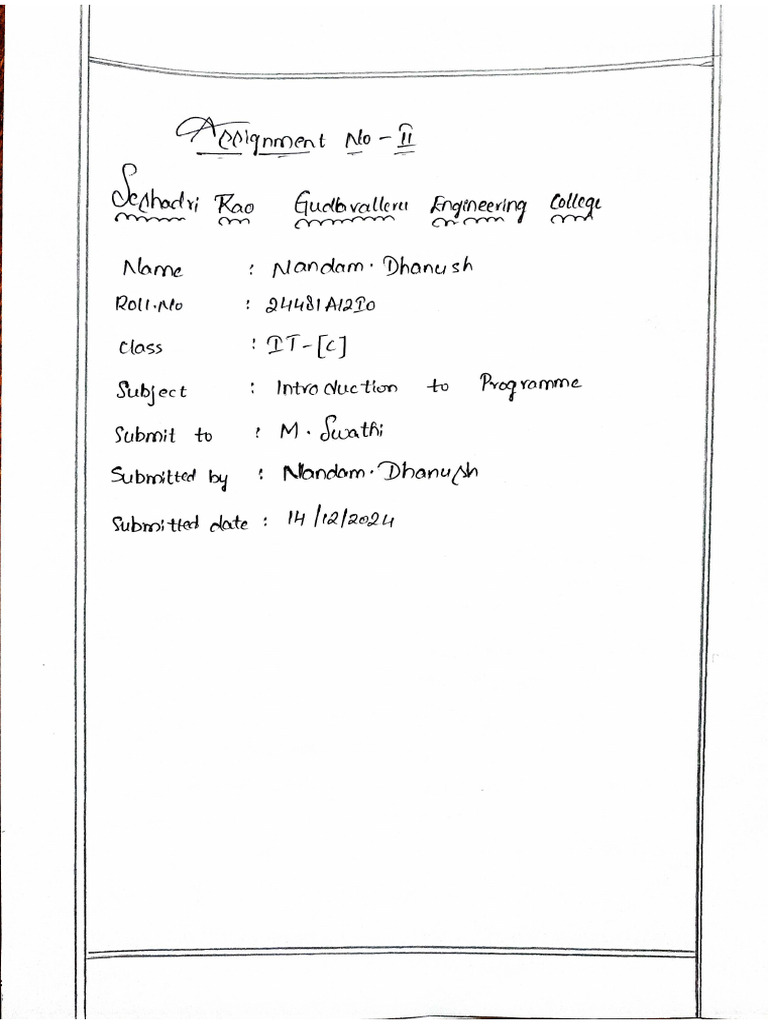 Assignment No - II
Seshadri Rao Gudlavalleru Engineering College
Name : Nandam. Dhanush
Roll.No : 24481A12D0
Class : IT-[C]
Subject : Introduction to Programme
Submit to : M. Swathi
Submitted by : Nandam. Dhanush
Submitted date : 14/12/2024